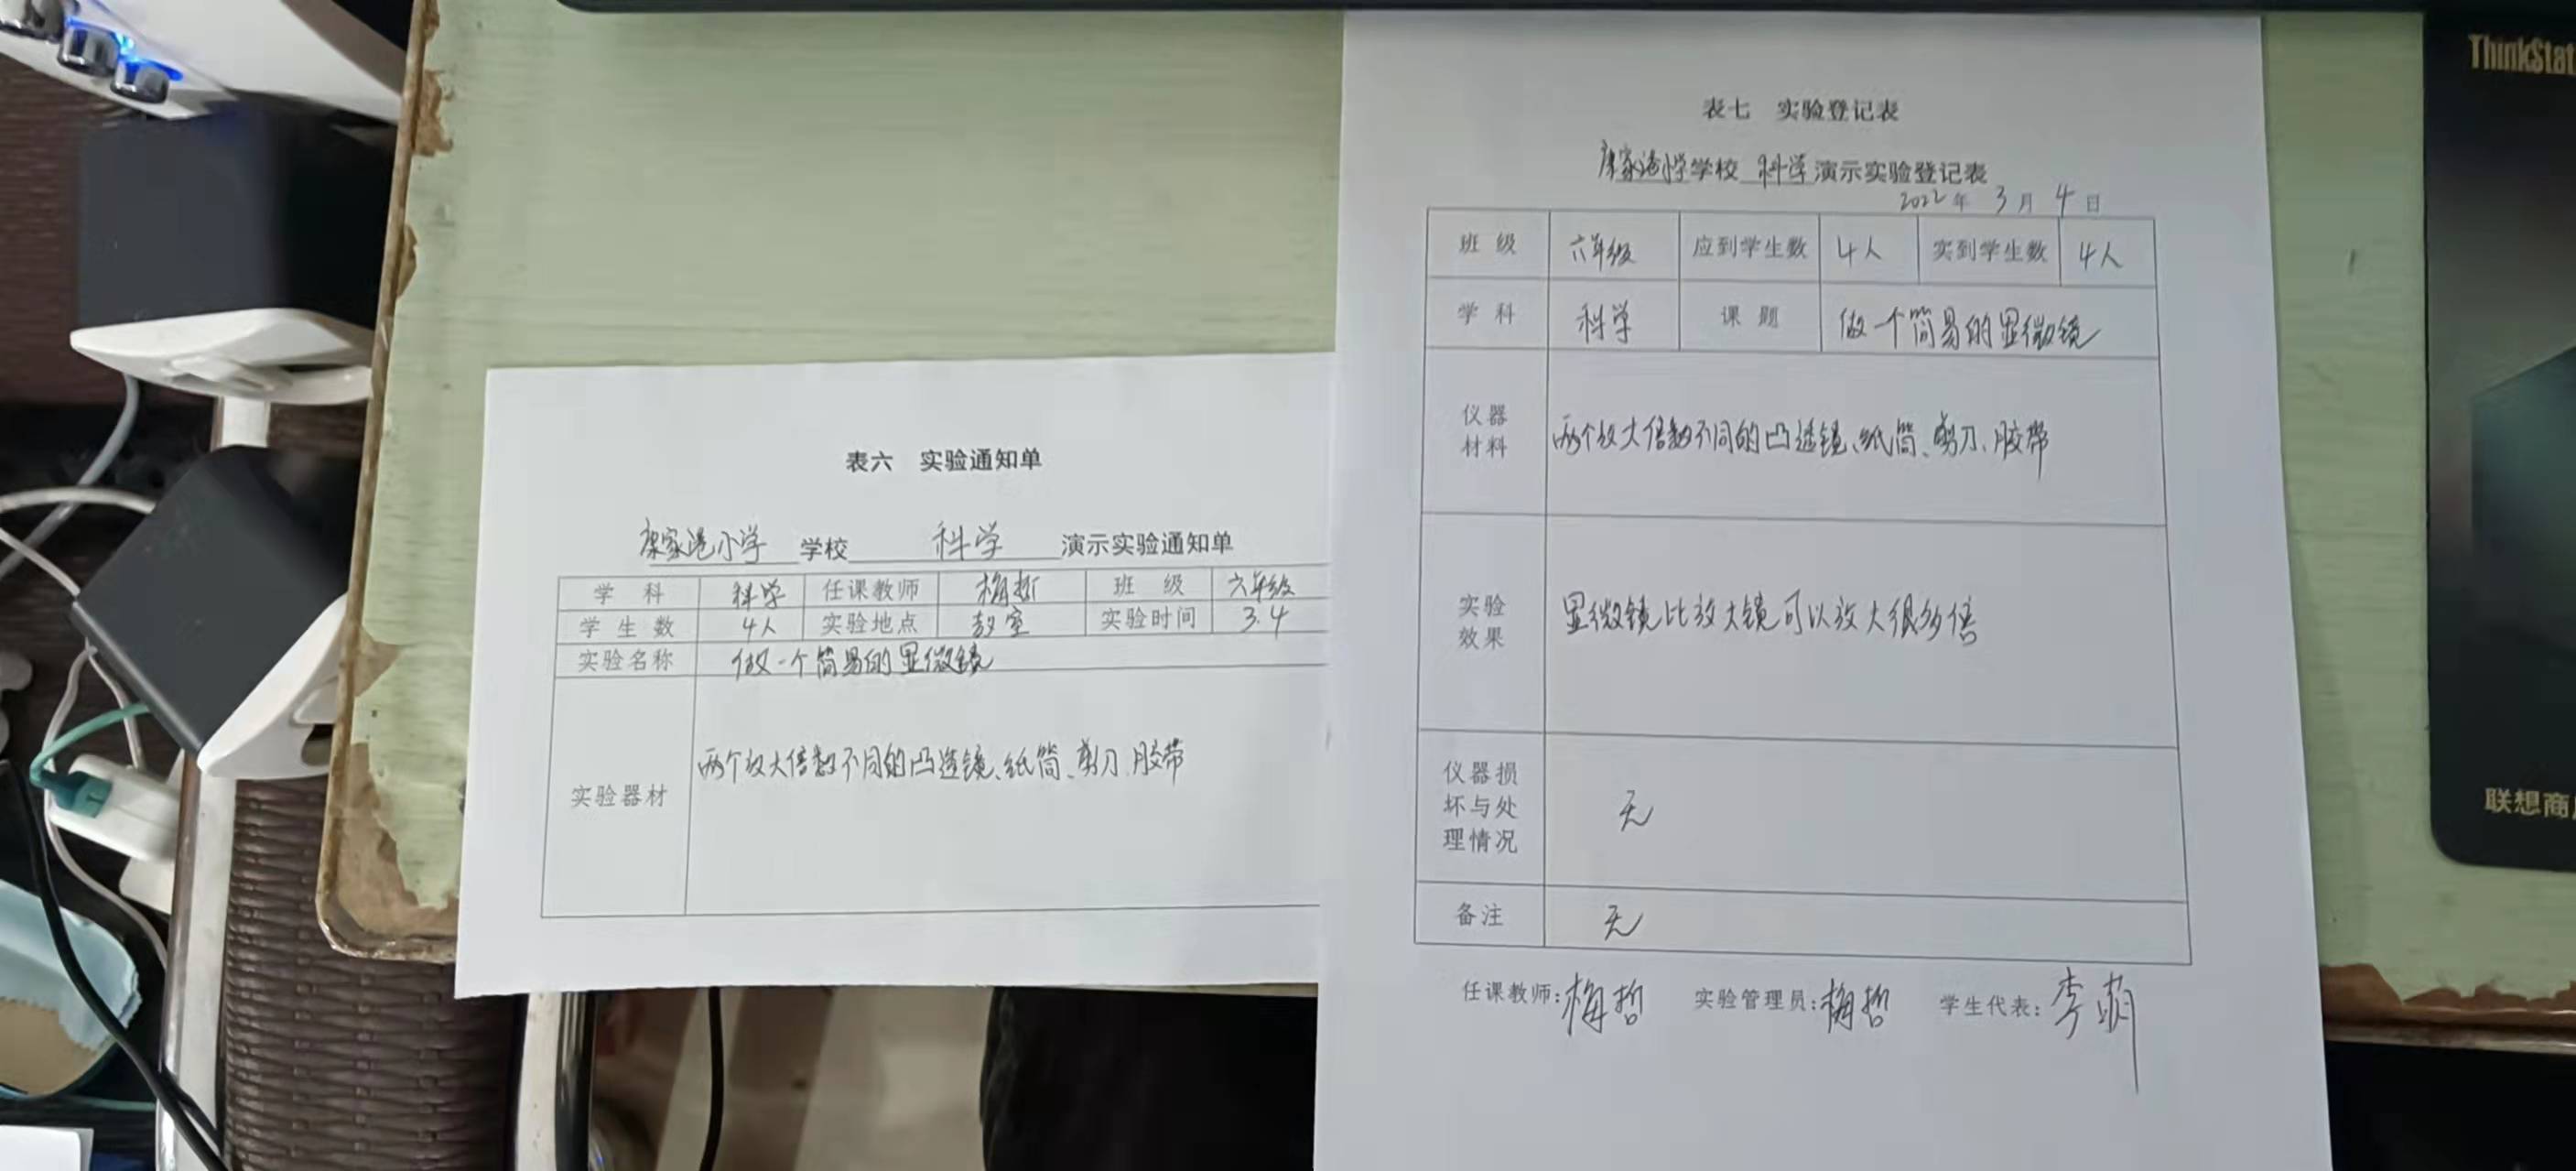 表六 实验通知单
康家港小学 学校 科学 演示实验通知单
学科 科学 任课教师 梅哲 班级 六年级
学生数 4人 实验地点 教室 实验时间 3.4
实验名称 做一个简易的显微镜
实验器材 两个放大倍数不同的凸透镜、纸筒、剪刀、胶带
表七 实验登记表
康家港小学学校 科学 演示实验登记表
2022年 3月 4日
班级 六年级 应到学生数 4人 实到学生数 4人
学科 科学 课题 做一个简易的显微镜
仪器材料 两个放大倍数不同的凸透镜、纸筒、剪刀、胶带
实验效果 显微镜比放大镜可以放大很多倍
仪器损坏与处理情况 无
备注 无
任课教师:梅哲 实验管理员:梅哲 学生代表:李萌
ThinkStat
联想商